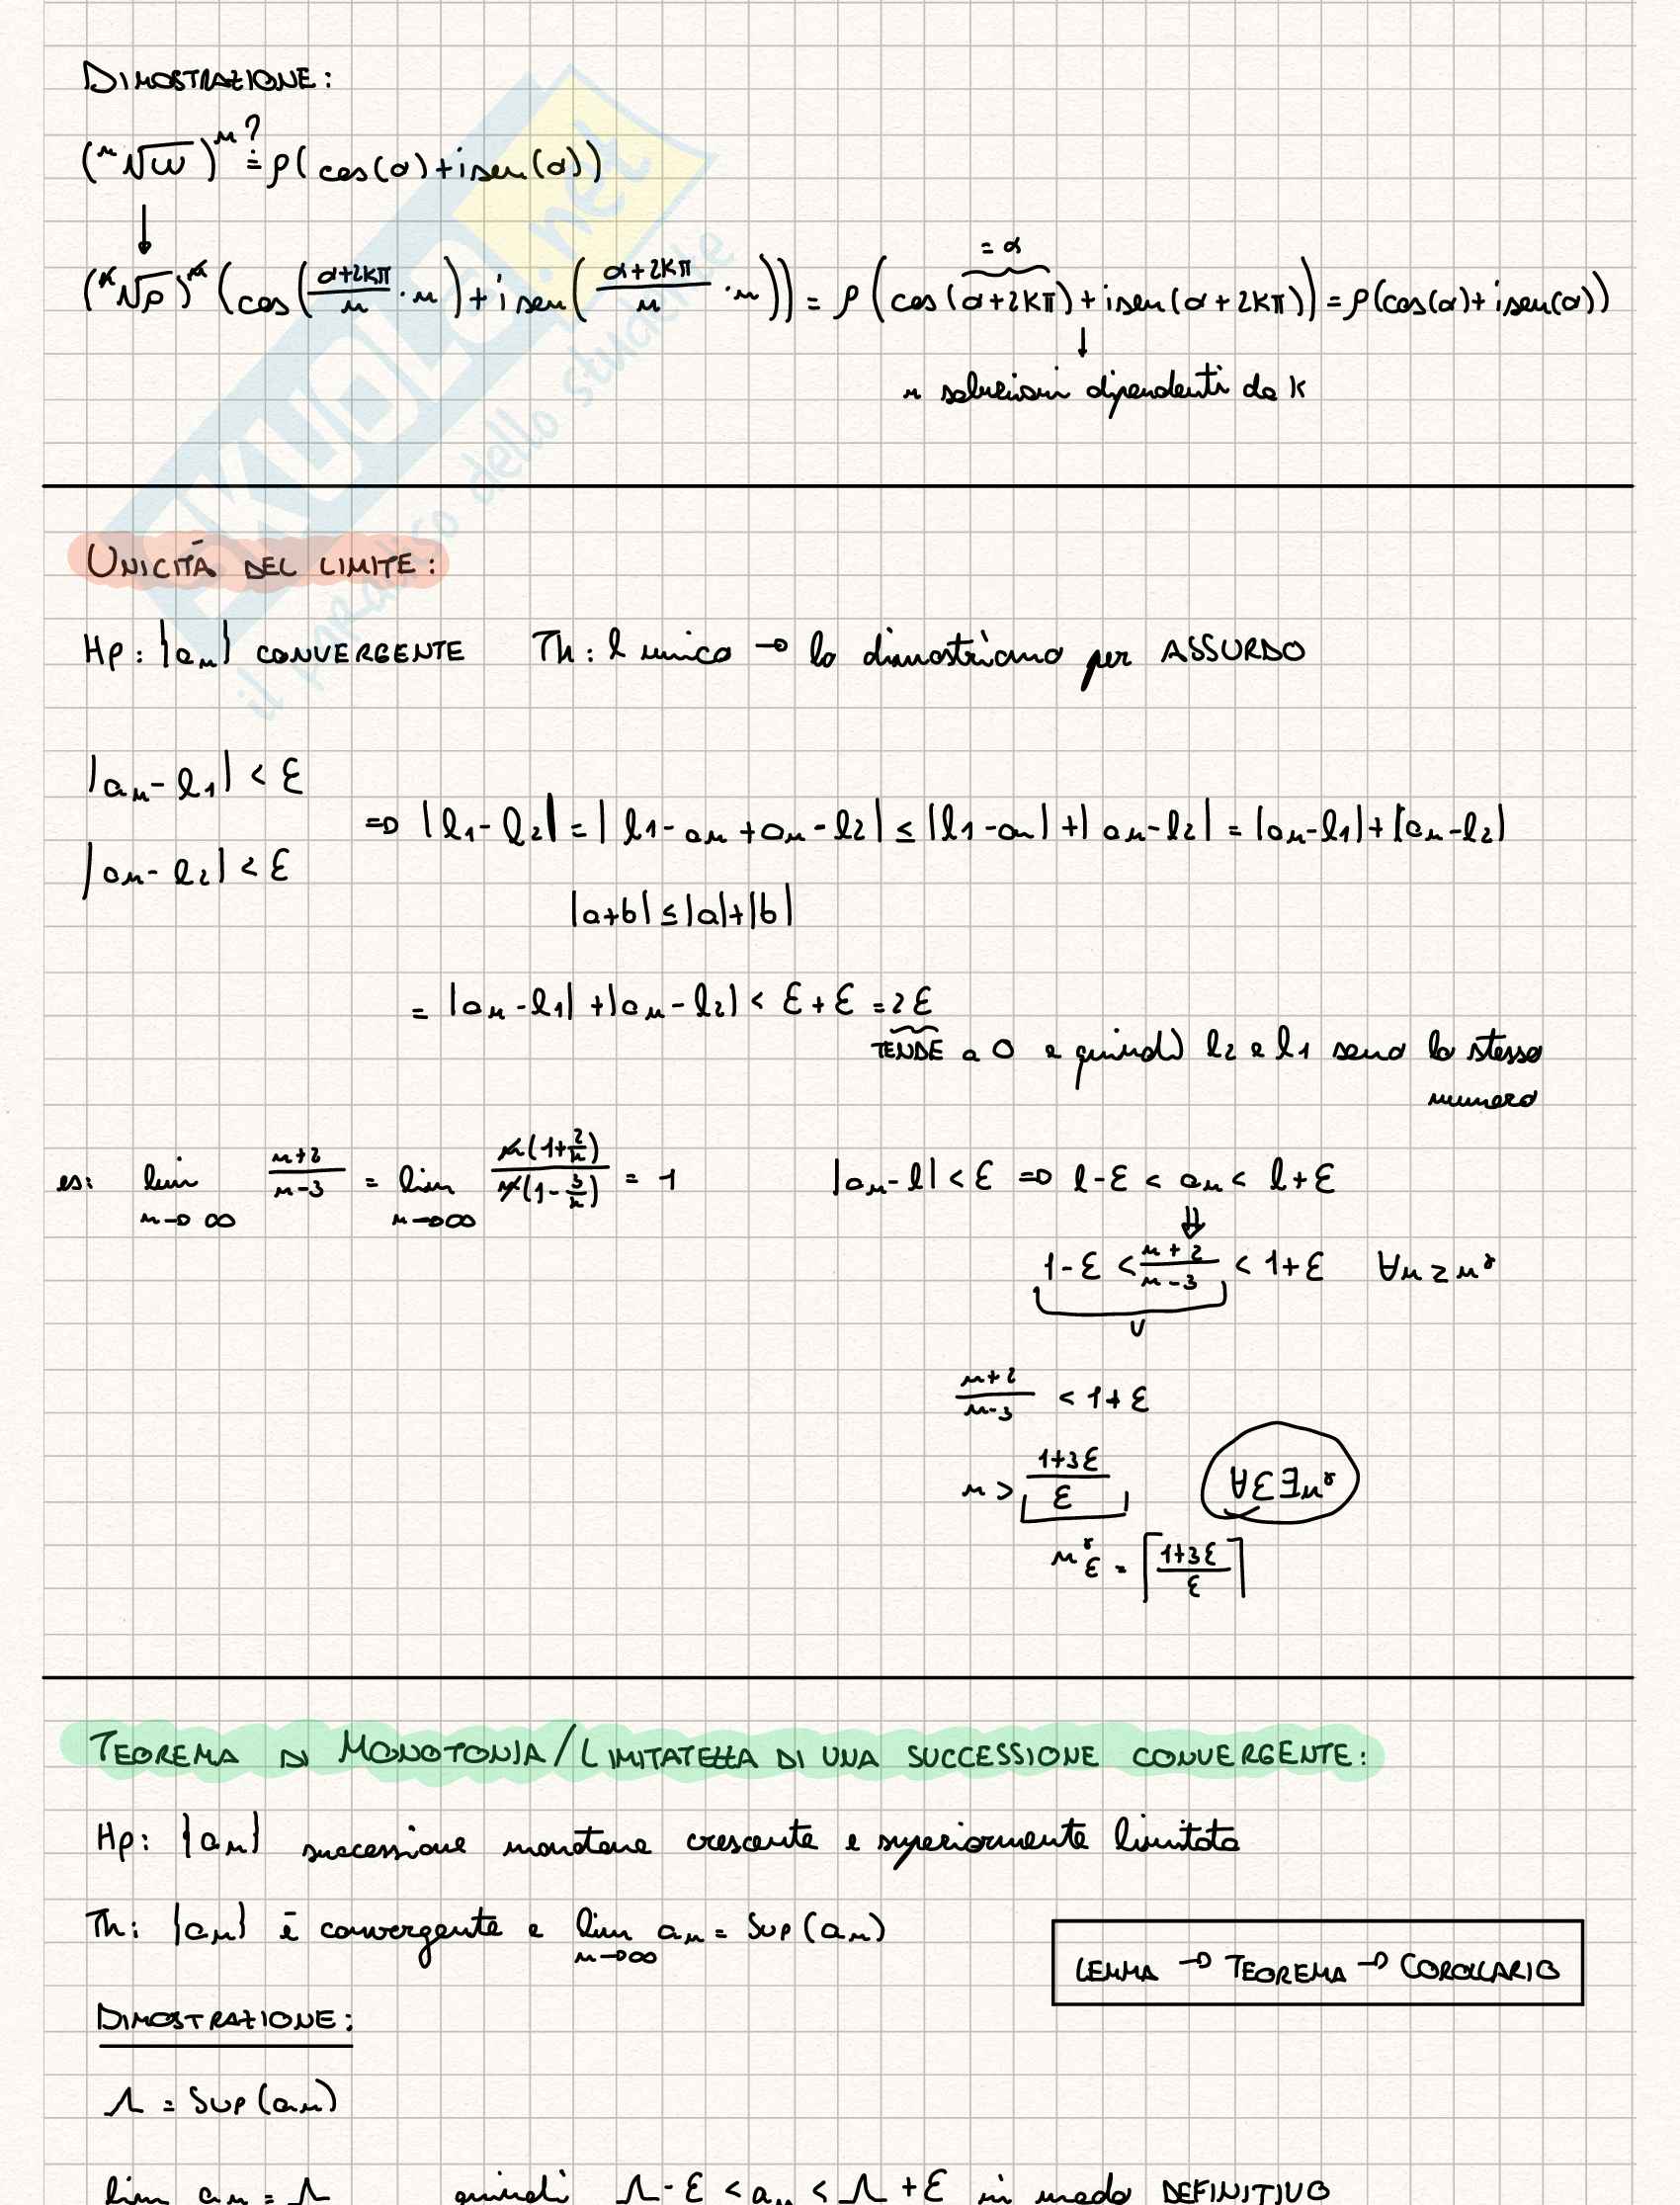 DIMOSTRAZIONE:
(ⁿ√w)ⁿ ≟ ρ(cos(α)+isen(α))
↓
(ⁿ√ρ)ⁿ (cos((α+2kπ)/n · n) + i sen((α+2kπ)/n · n)) = ρ(cos(α+2kπ) + isen(α+2kπ)) = ρ(cos(α)+isen(α))
= α
↓
n soluzioni dipendenti da k
UNICITÀ DEL LIMITE:
Hp: {an} CONVERGENTE Th: l unico → lo dimostriamo per ASSURDO
|an - l1| < ε
⇒ |l1 - l2| = |l1 - an + an - l2| ≤ |l1 - an| + |an - l2| = |an - l1| + |an - l2|
|an - l2| < ε
|a+b| ≤ |a|+|b|
= |an - l1| + |an - l2| < ε + ε = 2ε
TENDE a 0 e quindi l2 e l1 sono lo stesso
numero
es: lim n→∞ (n+2)/(n-3) = lim n→∞ n(1+2/n)/n(1-3/n) = 1 |an - l| < ε ⇒ l-ε < an < l+ε
⇓
1-ε < (n+2)/(n-3) < 1+ε ∀n≥n*
V
(n+2)/(n-3) < 1+ε
n > (1+3ε)/ε ∀ε∃n*
n*ε = ⌈(1+3ε)/ε⌉
TEOREMA DI MONOTONIA/LIMITATEZZA DI UNA SUCCESSIONE CONVERGENTE:
Hp: {an} successione monotona crescente e superiormente limitata
Th: {an} è convergente e lim n→∞ an = Sup(an)
LEMMA → TEOREMA → COROLLARIO
DIMOSTRAZIONE:
Λ = Sup(an)
lim an = Λ quindi Λ-ε < an < Λ+ε in modo DEFINITIVO
SKUOLA.net
il paradiso dello studente